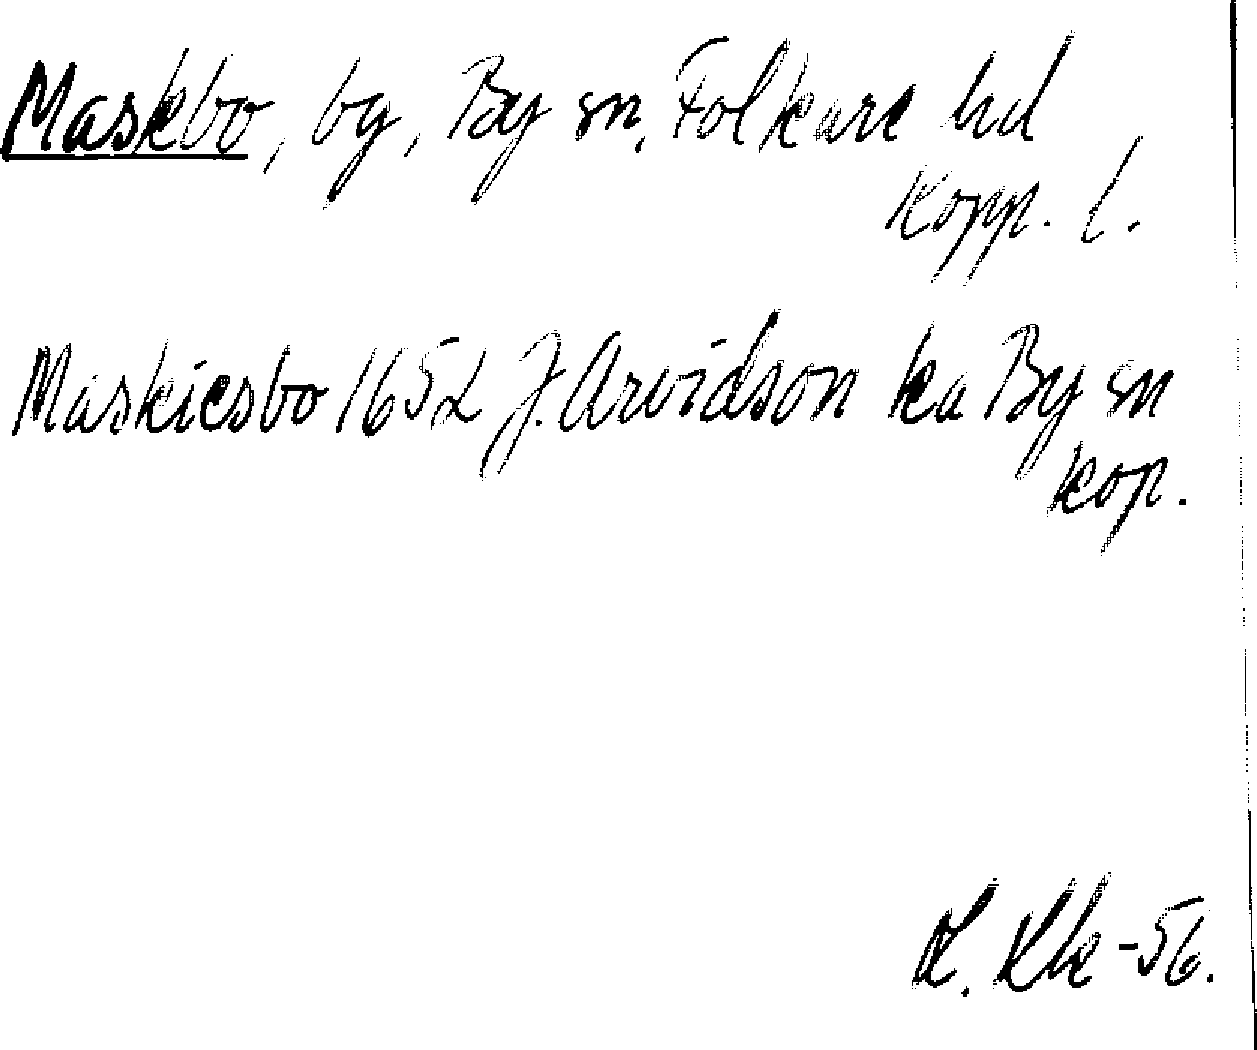 Maskbo, by, By sn, Folkare hd
Kopp. l.
Maskiesbo 1652 J. Arvidson ka By sn
kop.
-56.